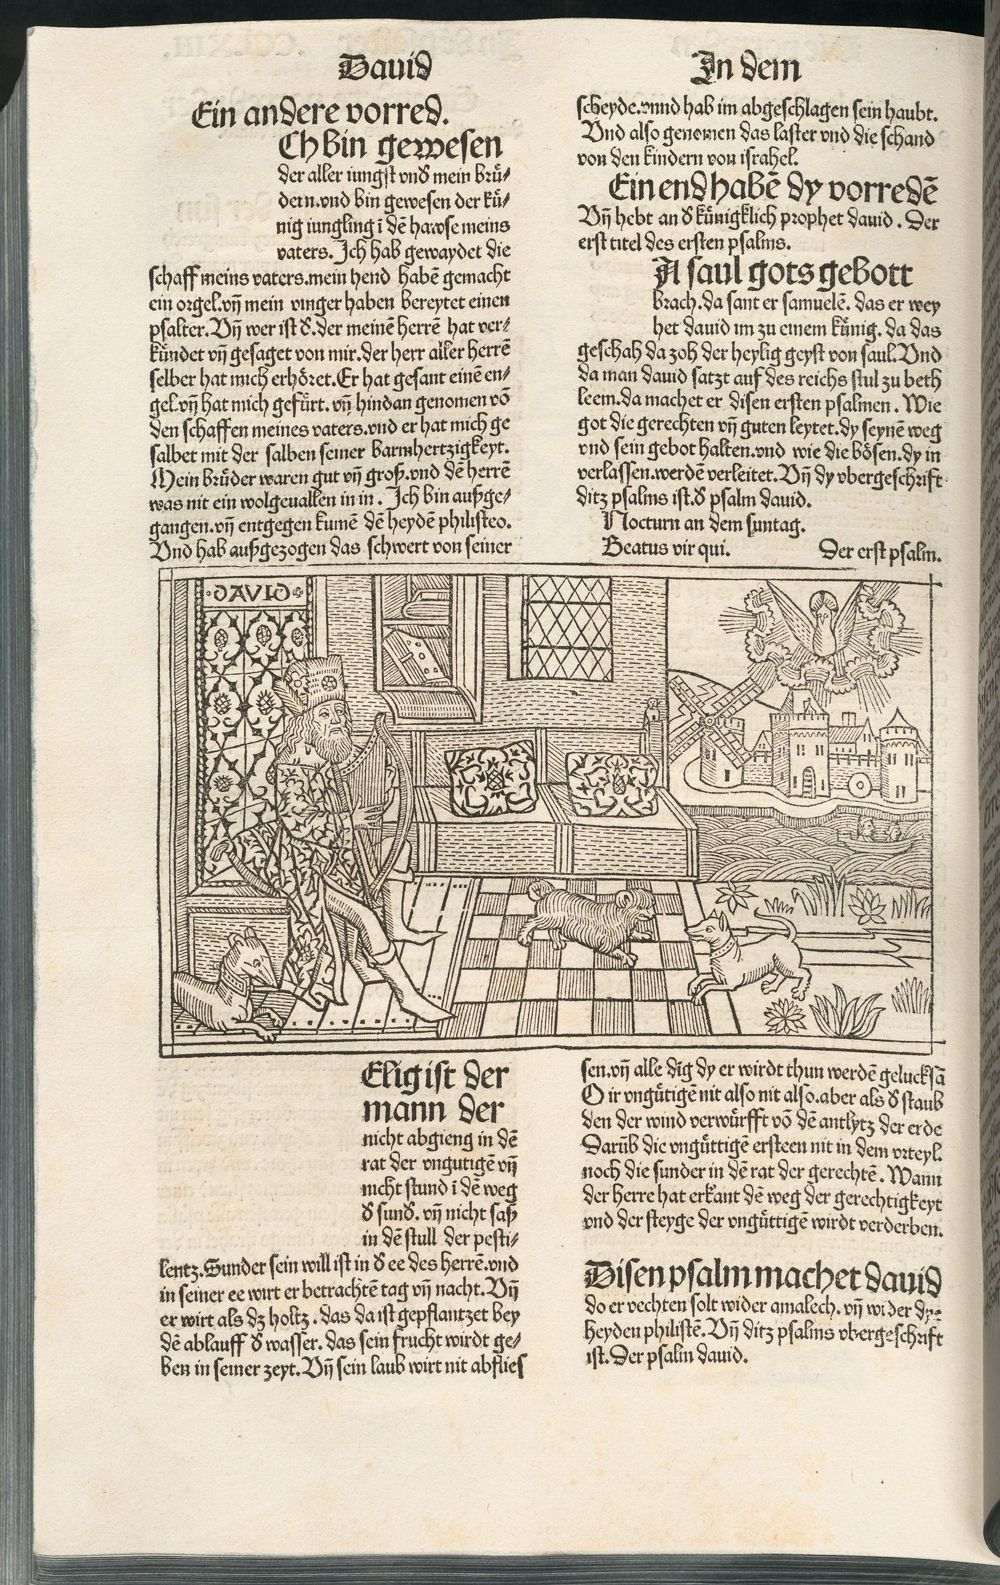 Dauid
In dem
Ein andere vorred.
Ch bin gewesen
der aller iungst vnd mein brü⸗
dern.vnd bin gewesen der kü⸗
nig iungling ī dē hawse meins
vaters. Ich hab gewaydet die
schaff meins vaters.mein hend habē gemacht
ein orgel.vn̄ mein vinger haben bereytet einen
psalter.Vn̄ wer ist d̕.der meinē herrē hat ver⸗
kündet vn̄ gesaget von mir.der herr aller herrē
selber hat mich erhöret.Er hat gesant einē en⸗
gel.vn̄ hat mich gefürt. vn̄ hindan genomen vō
den schaffen meines vaters.vnd er hat mich ge
salbet mit der salben seiner barmhertzigkeyt.
Mein brüder waren gut vn̄ groß.vnd dē herrē
was nit ein wolgeuallen in in. Ich bin außge⸗
gangen.vn̄ entgegen kumē dē heydē philisteo.
Vnd hab außgezogen das schwert von seiner
scheyde.vnnd hab im abgeschlagen sein haubt.
Vnd also genomen das laster vnd die schand
von den kindern von israhel.
Ein end habē dy vorredē
Vn̄ hebt an d̕ künigklich prophet dauid. Der
erst titel des ersten psalms.
A saul gots gebott
brach.da sant er samuelē. das er wey
het dauid im zu einem künig. da das
geschah da zoh der heylig geyst von saul.Vnd
da man dauid satzt auf des reichs stul zu beth
leem.da machet er disen ersten psalmen. Wie
got die gerechten vn̄ guten leytet.dy seynē weg
vnd sein gebot halten.vnd wie die bösen.dy in
verlassen.werdē verleitet. Vn̄ dy vbergeschrift
ditz psalms ist.d̕ psalm dauid.
Nocturn an dem suntag.
Beatus vir qui. Der erst psalm.
·DAVID·
Elig ist der
mann der
nicht abgieng in dē
rat der vngutigē vn̄
nicht stund ī dē weg
d̕ sund̕. vn̄ nicht saß
in dē stull der pesti⸗
lentz.Sunder sein will ist in d̕ ee des herrē.vnd
in seiner ee wirt er betrachtē tag vn̄ nacht. Vn̄
er wirt als dz holtz. das da ist gepflantzet bey
dē ablauff d̕ wasser. das sein frucht wirdt ge⸗
ben in seiner zeyt. Vn̄ sein laub wirt nit abflies
sen.vn̄ alle dīg dy er wirdt thun werdē gelucksā
O ir vngütigē nit also nit also.aber als d̕ staub
den der wind verwürfft vō dē antlytz der erde
Darūb die vngüttigē ersteen nit in dem vrteyl.
noch die sunder in dē rat der gerechtē. Wann
der herre hat erkant dē weg der gerechtigkeyt
vnd der steyge der vngüttigē wirdt verderben.
Disen psalm machet dauid
do er vechten solt wider amalech. vn̄ wider dy⸗
heyden philistē. Vn̄ ditz psalms vbergeschrift
ist. Der psalm dauid.